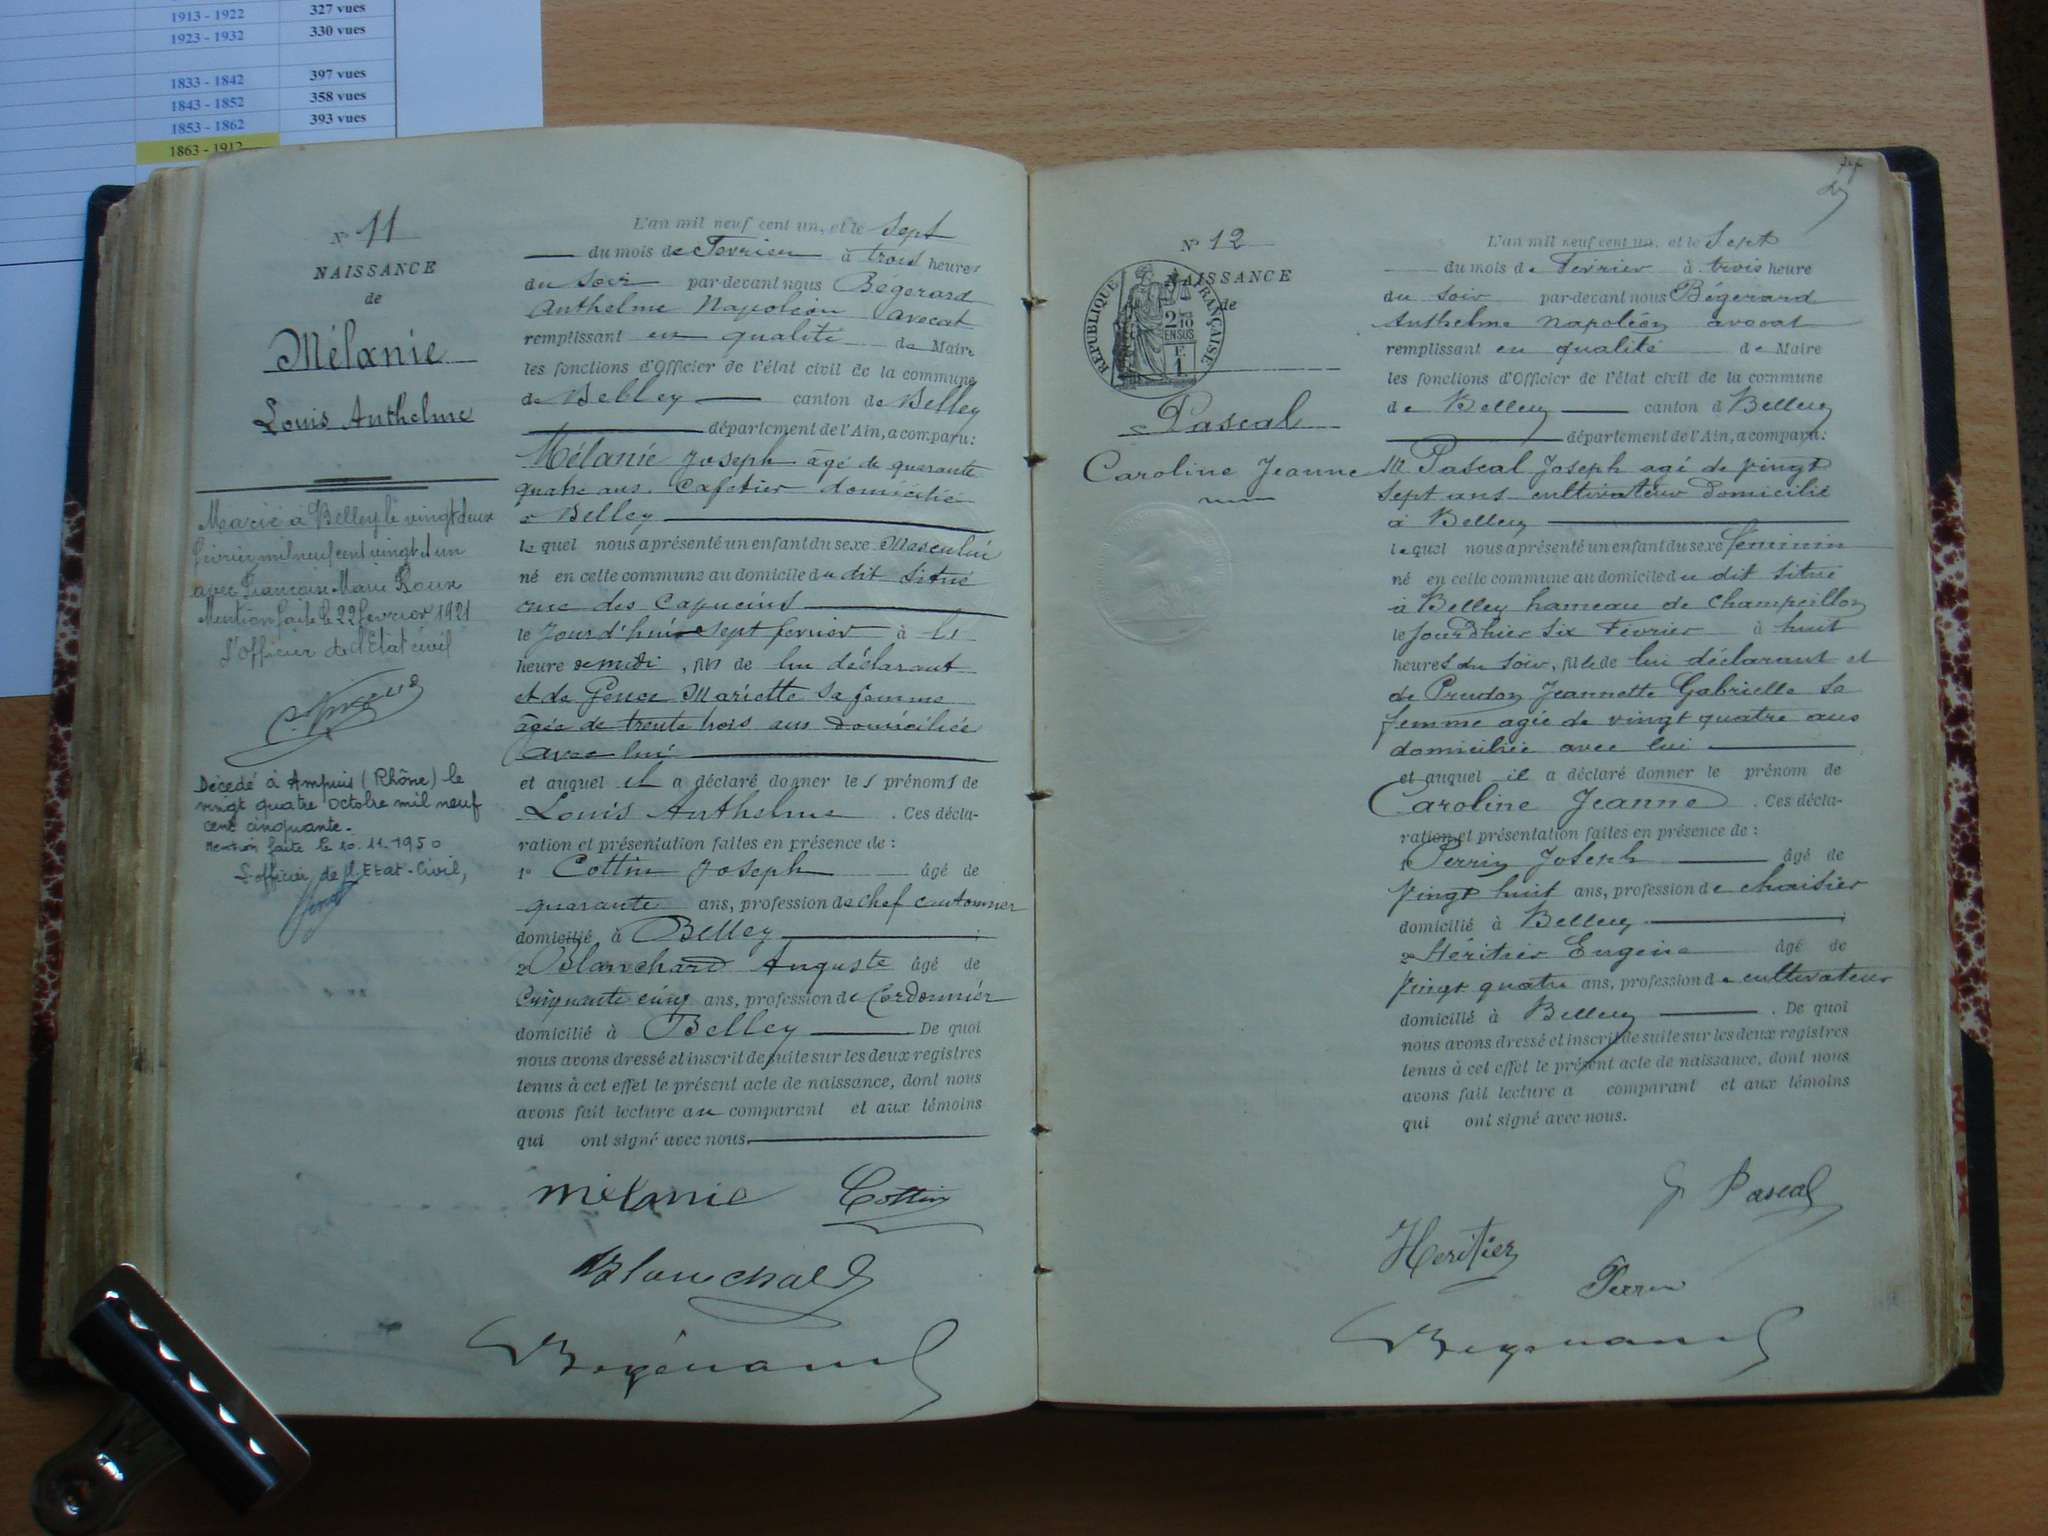 1913 - 1922 327 vues
1923 - 1932 330 vues
1833 - 1842 397 vues
1843 - 1852 358 vues
1853 - 1862 393 vues
1863 - 1912
N° 11
NAISSANCE
de
Mélanie
Louis Anthelme
Marié à Belley le vingt deux
février mil neuf cent vingt et un
avec Françoise Marie Roux
Mention faite le 22 février 1921
l'Officier de l'Etat civil
Décédé à Ampuis (Rhône) le
vingt quatre Octobre mil neuf
cent cinquante.
Mention faite le 10.11.1950
L'officier de l'Etat-Civil,
L'an mil neuf cent un, et le sept
du mois de Fevrier à trois heures
du soir par-devant nous Begerard
Anthelme Napoléon avocat
remplissant en qualité de Maire
les fonctions d'Officier de l'état civil de la commune
de Belley canton de Belley
département de l'Ain, a comparu:
Mélanie Joseph âgé de quarante
quatre ans Cafetier domicilié
à Belley
le quel nous a présenté un enfant du sexe Masculin
né en cette commune au domicile du dit situé
rue des Capucins
le jourd'hui sept fevrier à
heure de midi, fils de lui déclarant
et de Mariette sa femme
âgée de trente trois ans domiciliée
avec lui
et auquel il a déclaré donner les prénoms de
Louis Anthelme. Ces décla-
ration et présentation faites en présence de :
1° Cottin Joseph âgé de
quarante ans, profession de chef cantonnier
domicilié à Belley ;
2° Blanchard Auguste âgé de
Cinquante cinq ans, profession de Cordonnier
domicilié à Belley. De quoi
nous avons dressé et inscrit de suite sur les deux registres
tenus à cet effet le présent acte de naissance, dont nous
avons fait lecture au comparant et aux témoins
qui ont signé avec nous.
Mélanie Cottin
Blanchard
Begérard
N° 12
NAISSANCE
de
REPUBLIQUE FRANÇAISE
2/10
EN SUS
Pascal
Caroline Jeanne
L'an mil neuf cent un, et le Sept
du mois de Février à trois heure
du soir par-devant nous Bégerard
Anthelme Napoléon avocat
remplissant en qualité de Maire
les fonctions d'Officier de l'état civil de la commune
de Belley canton d Belley
département de l'Ain, a comparu:
M Pascal Joseph agé de vingt
sept ans cultivateur domicilié
à Belley
le quel nous a présenté un enfant du sexe féminin
né en cette commune au domicile du dit situé
à Belley hameau de Champeillon
le jourdhier six Février à huit
heures du soir, fille de lui déclarant et
de Prudon Jeannette Gabrielle sa
femme agée de vingt quatre ans
domiciliée avec lui
et auquel il a déclaré donner le prénom de
Caroline Jeanne. Ces décla-
ration et présentation faites en présence de :
1° Perrin Joseph âgé de
Vingt huit ans, profession de chaisier
domicilié à Belley ;
2° Héritier Eugène âgé de
Vingt quatre ans, profession de cultivateur
domicilié à Belley. De quoi
nous avons dressé et inscrit de suite sur les deux registres
tenus à cet effet le présent acte de naissance, dont nous
avons fait lecture a comparant et aux témoins
qui ont signé avec nous.
J Pascal
Heritier
Perrin
Begerard